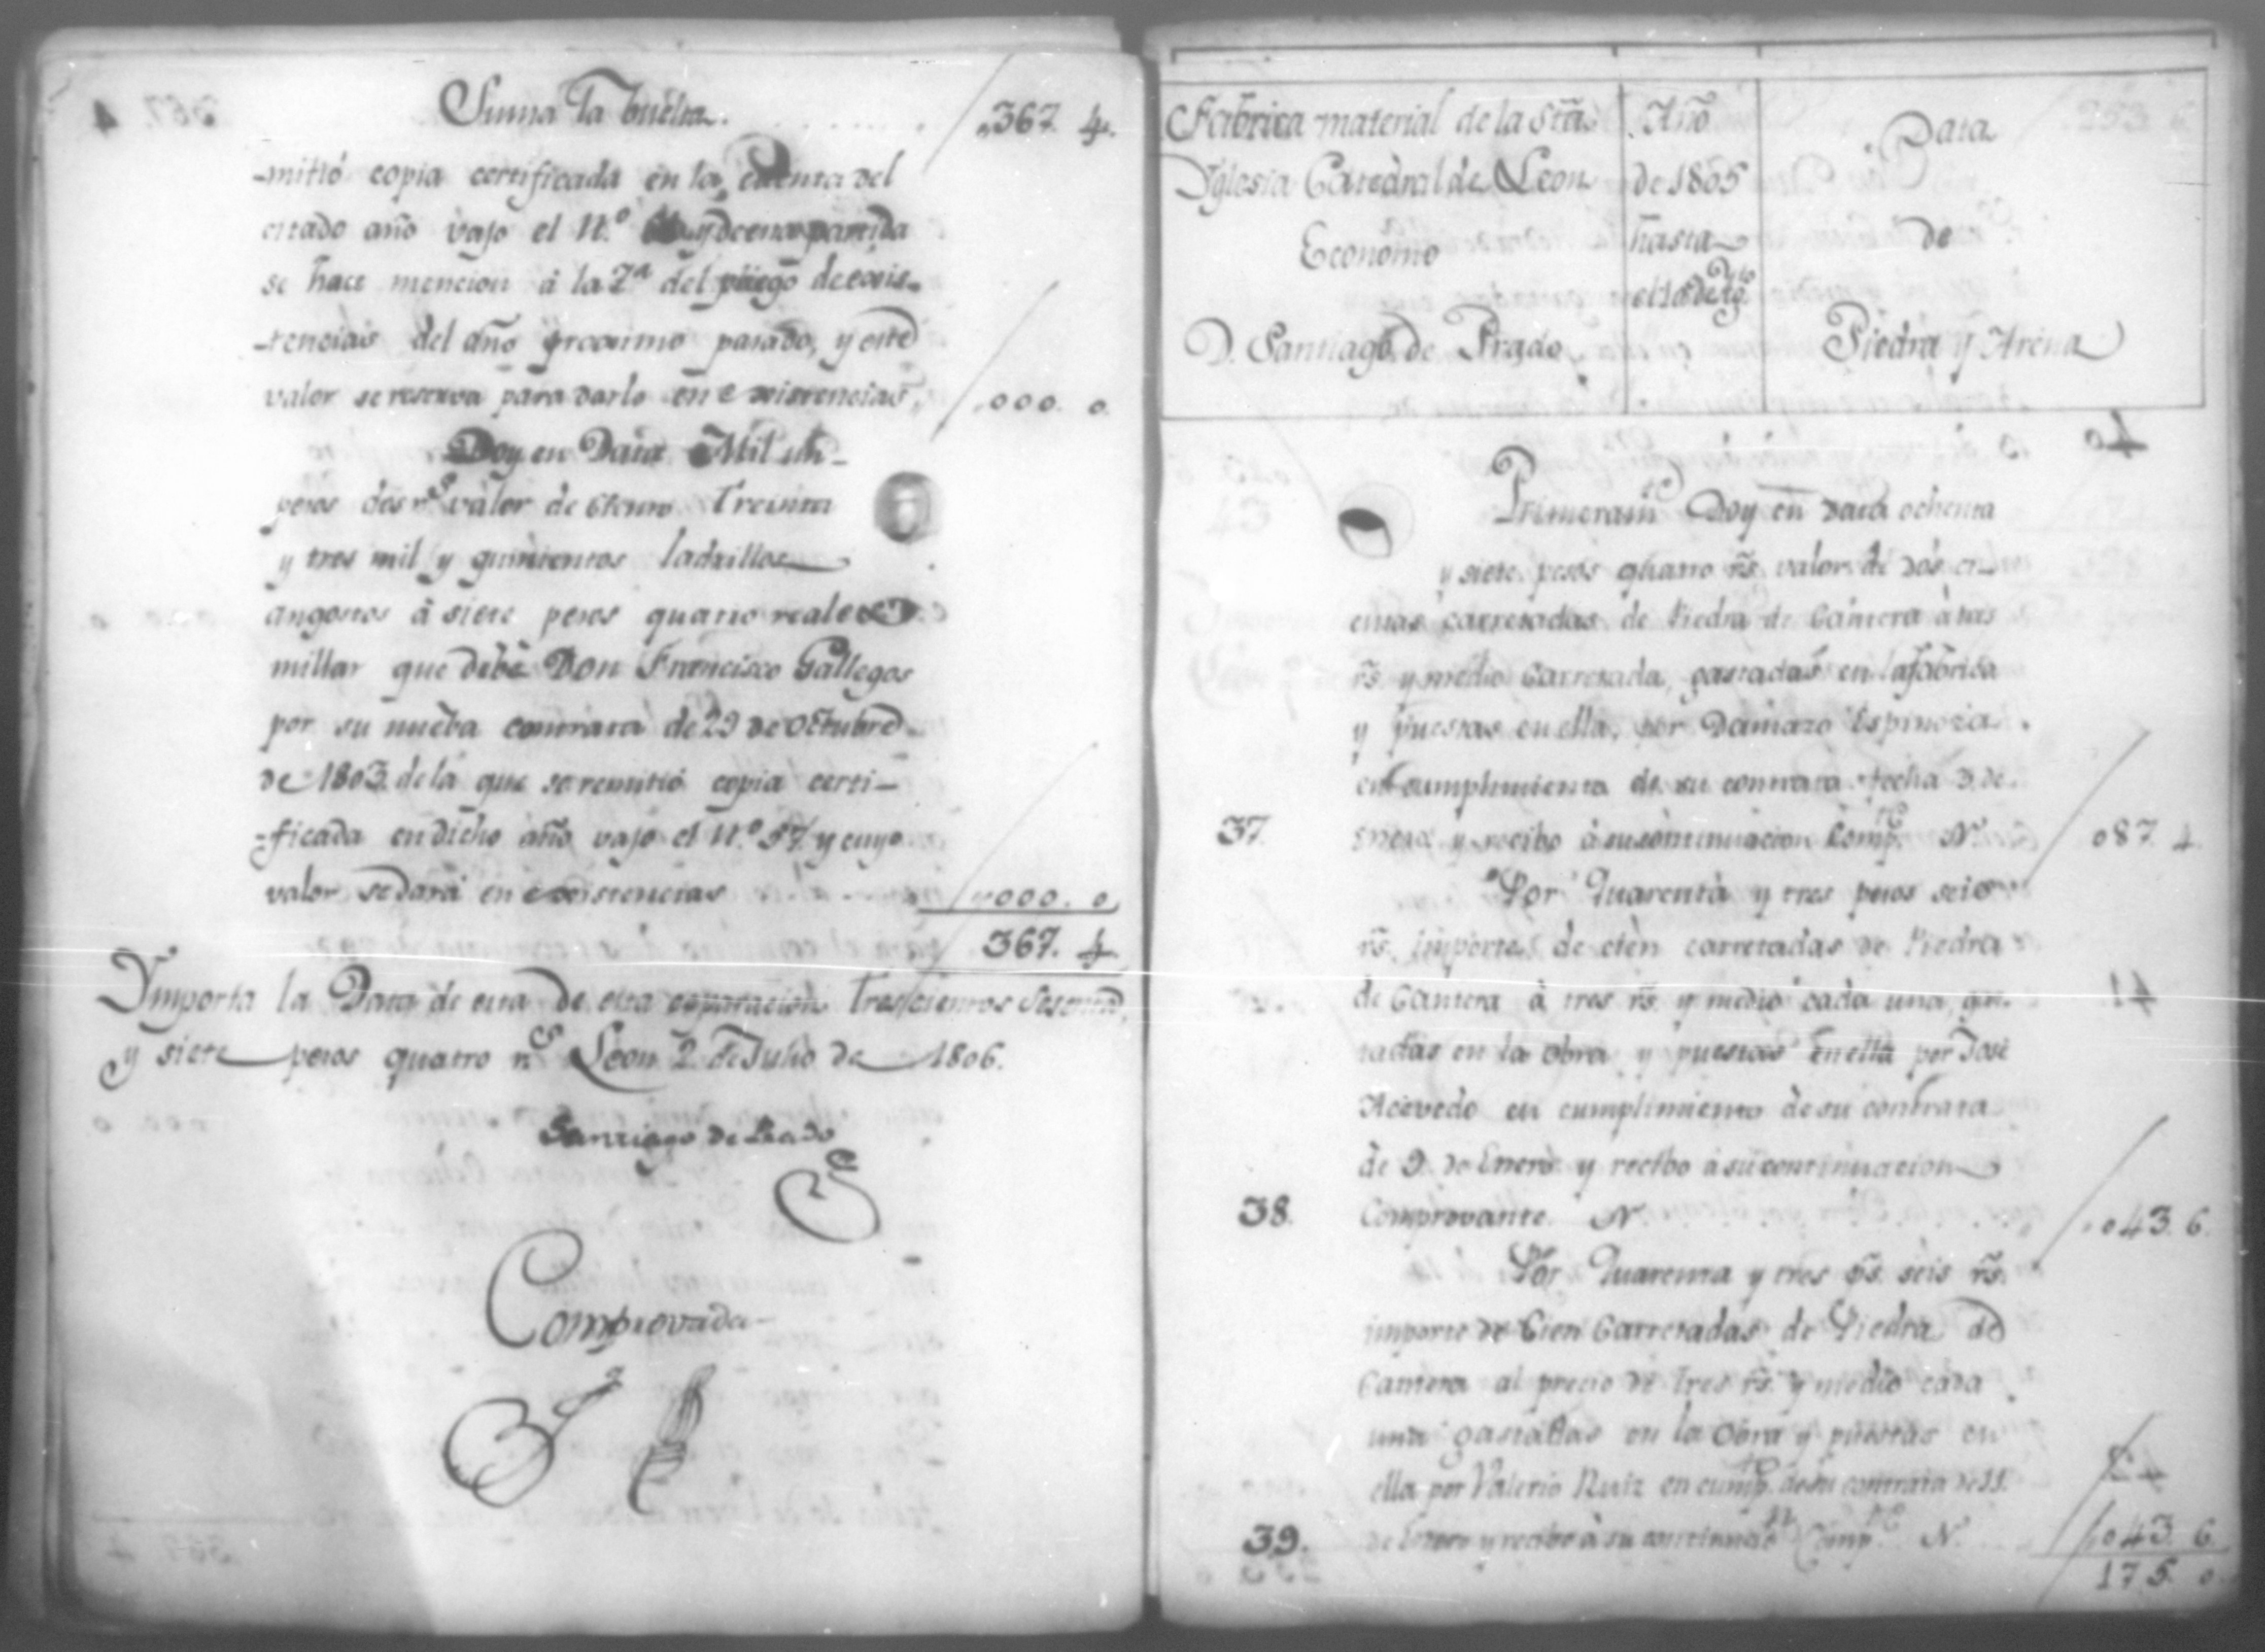 Suma la buelta. 367. 4.
-mitió copia certificada en la cuenta del
citado año vajo el N.º y de esta partida
se hace mencion á la 2ª del pliego de exis-
-tencias del año proximo pasado, y este
valor se reserva para darlo en existencias. 000. 0.
Doy en Data Mil un
pesos dos rs valor de ciento treinta
y tres mil y quinientos ladrillos
angostos á siete pesos quatro reales
millar que debe Don Francisco Gallegos
por su nueba contrata de 29 de Octubre
de 1803. de la que se remitió copia certi-
-ficada en dicho año vajo el N.º 57. y cuyo
valor se dará en existencias 000. 0
367. 4.
Ymporta la Data de esta de esta separacion trescientos sesenta,
y siete pesos quatro rs Leon 2. de Julio de 1806.
Santiago de Prado
Comprovada
Fabrica material de la Sta
Yglesia Catedral de Leon
Economo
D. Santiago de Prado
Año
de 1805
hasta
Data
de
Piedra y Arena
Primeramte Doy en data ochenta
y siete pesos quatro rs. valor de dos ci-
entas carretadas de Piedra de Cantera á tres
rs. y medio carretada, gastadas en la fabrica
y puestas en ella, por Damazo Espinoza
en cumplimiento de su contrata fecha 3 de
37. Enero y recibo á su continuacion Compte N. 087. 4.
Por quarenta y tres pesos seis
rs. importe de cien carretadas de Piedra
de Cantera á tres rs. y medio cada una, gas-
tadas en la obra y puestas en ella por José
Acevedo en cumplimiento de su contrata
de 9. de Enero y recibo á su continuacion
38. Comprovante. N. 043. 6.
Por quarenta y tres ps. seis rs.
importe de Cien Carretadas de Piedra de
Cantera al precio de tres rs. y medio cada
una gastadas en la obra y puestas en
ella por Valerio Ruiz en cumpto de su contrata de 11.
39. de Enero y recibo á su continuacn Compte N. 043. 6.
175. 0